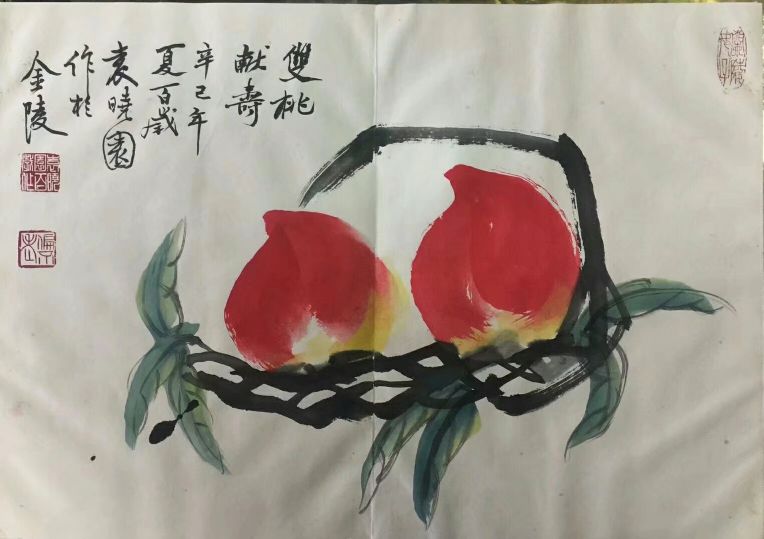 雙桃
獻壽
辛巳年
夏百歲
袁曉園
作於
金陵